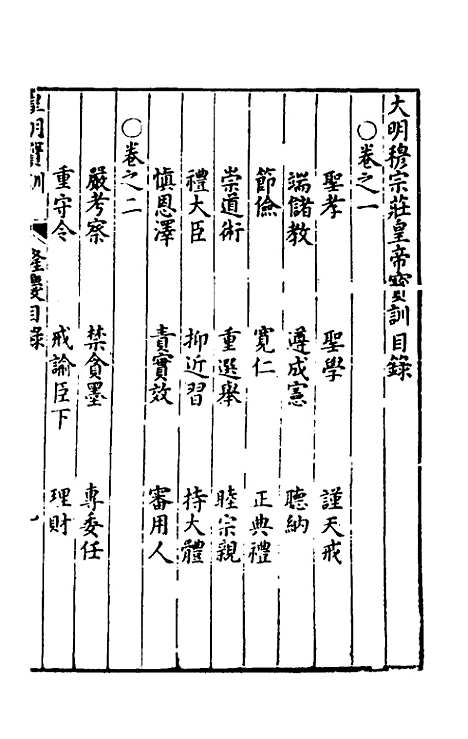 大明穆宗莊皇帝寶訓目錄
○卷之一
聖孝　聖學　謹天戒
端儲教　遵成憲　聽納
節儉　寬仁　正典禮
崇道術　重選舉　睦宗親
禮大臣　抑近習　持大體
慎恩澤　責實效　審用人
○卷之二
嚴考察　禁貪墨　專委任
重守令　戒諭臣下　理財
皇明寶訓　隆慶目錄